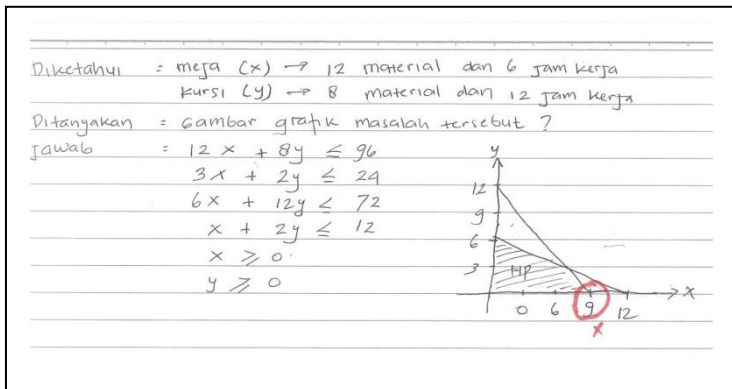 Diketahui : meja (x) → 12 material dan 6 jam kerja
kursi (y) → 8 material dan 12 jam kerja
Ditanyakan : Gambar grafik masalah tersebut ?
Jawab : 12x + 8y ≤ 96
3x + 2y ≤ 24
6x + 12y ≤ 72
x + 2y ≤ 12
x ≥ 0
y ≥ 0
y
12
9
6
3 HP
x
0 6 9 12
x